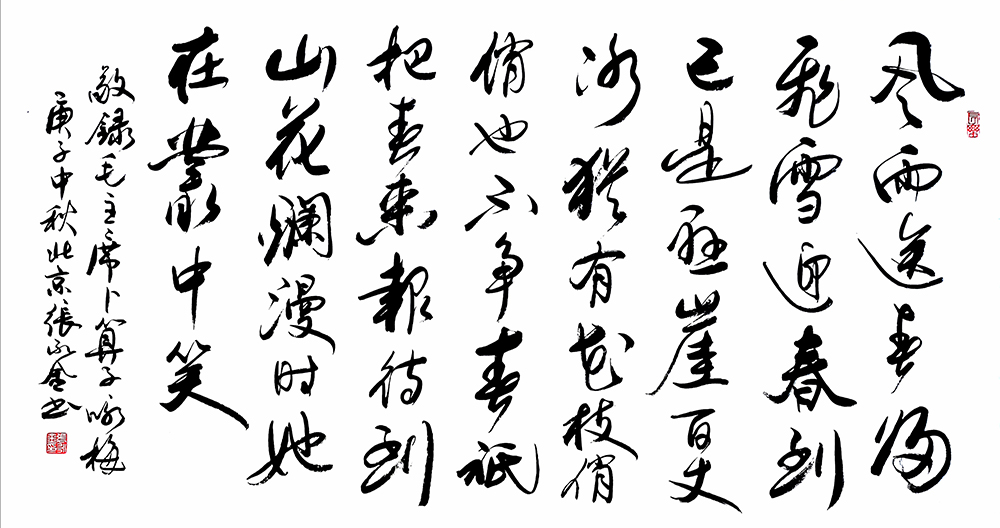 风雨送春归
飛雪迎春到
已是悬崖百丈
冰猶有花枝俏
俏也不争春祇
把春来報待到
山花爛漫时她
在叢中笑
敬録毛主席卜算子咏梅
庚子中秋北京張书